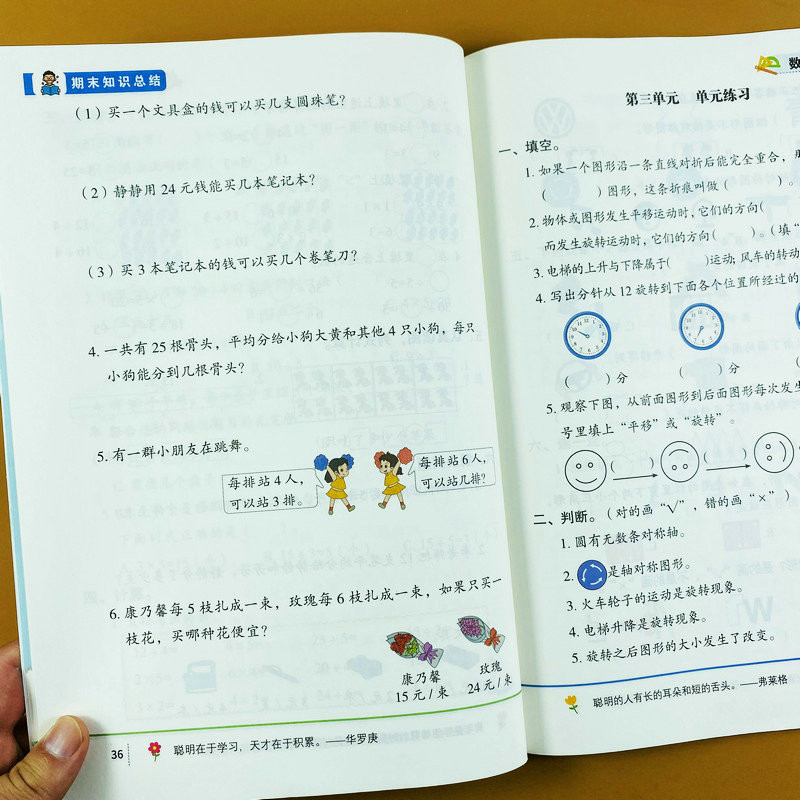 期末知识总结
（1）买一个文具盒的钱可以买几支圆珠笔？
（2）静静用 24 元钱能买几本笔记本？
（3）买 3 本笔记本的钱可以买几个卷笔刀？
4. 一共有 25 根骨头，平均分给小狗大黄和其他 4 只小狗，每只
小狗能分到几根骨头？
5. 有一群小朋友在跳舞。
每排站 4 人，
可以站 3 排。
每排站 6 人，
可以站几排？
6. 康乃馨每 5 枝扎成一束，玫瑰每 6 枝扎成一束，如果只买一
枝花，买哪种花便宜？
康乃馨
15 元 / 束
玫瑰
24 元 / 束
36
聪明在于学习，天才在于积累。——华罗庚
数
第三单元 单元练习
一、填空。
1. 如果一个图形沿一条直线对折后能完全重合，那
（ ）图形，这条折痕叫做（ ）。
2. 物体或图形发生平移运动时，它们的方向（
而发生旋转运动时，它们的方向（ ）。（填“
3. 电梯的上升与下降属于（ ）运动；风车的转动
4. 写出分针从 12 旋转到下面各个位置所经过的
（ ）分 （ ）分
5. 观察下图，从前面图形到后面图形每次发生
号里填上“平移”或“旋转”。
（ ） （ ）
二、判断。（对的画“√”，错的画“×”）
1. 圆有无数条对称轴。
2. 是轴对称图形。
3. 火车轮子的运动是旋转现象。
4. 电梯升降是旋转现象。
5. 旋转之后图形的大小发生了改变。
聪明的人有长的耳朵和短的舌头。——弗莱格